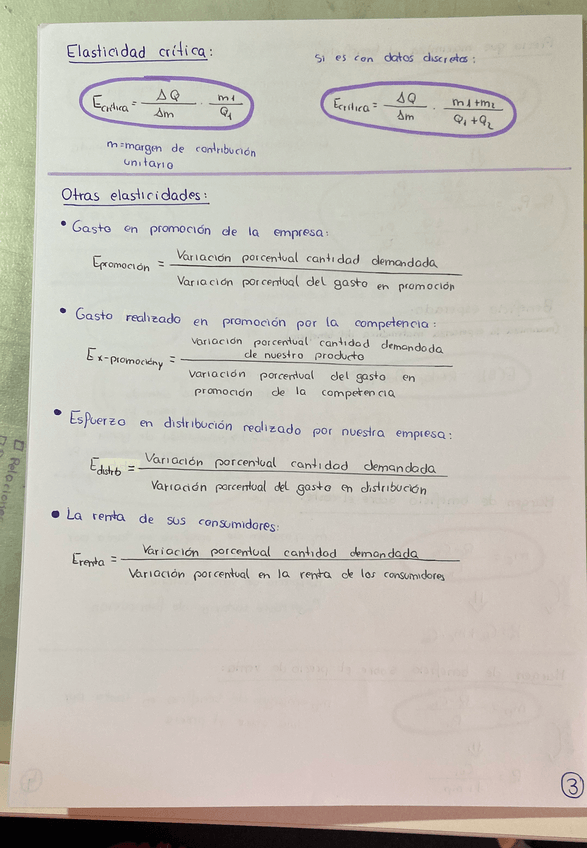 Elasticidad crítica:
Ecrítica = ΔQ / Δm · m1 / Q1
m=margen de contribución
unitario
Si es con datos discretos:
Ecrítica = ΔQ / Δm · m1+m2 / Q1+Q2
Otras elasticidades:
• Gasto en promoción de la empresa:
Epromoción = Variación porcentual cantidad demandada
Variación porcentual del gasto en promoción
• Gasto realizado en promoción por la competencia:
Ex-promocióny = Variación porcentual cantidad demandada
de nuestro producto
Variación porcentual del gasto en
promoción de la competencia
• Esfuerzo en distribución realizado por nuestra empresa:
Edistrib = Variación porcentual cantidad demandada
Variación porcentual del gasto en distribución
• La renta de sus consumidores:
Erenta = Variación porcentual cantidad demandada
Variación porcentual en la renta de los consumidores
3